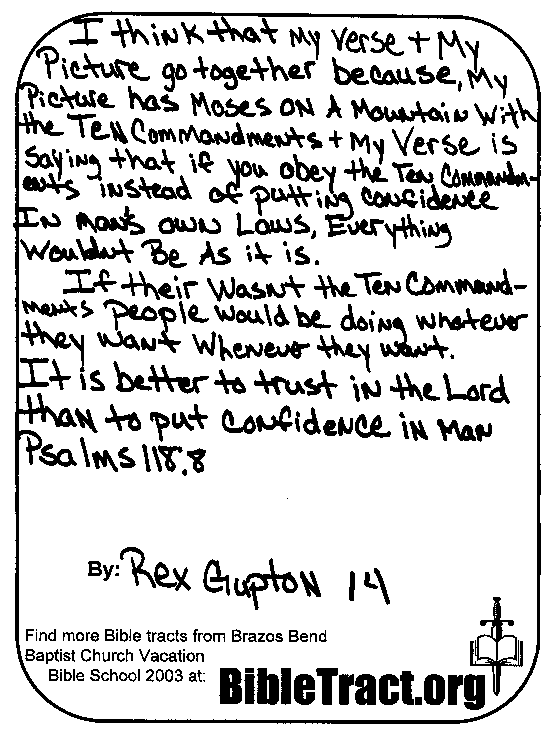 I think that my verse + my
Picture go together because, my
Picture has Moses on A Mountain With
the Ten Commandments + My Verse is
saying that if you obey the Ten Commandm-
ents instead of putting confidence
In man's own Laws, Everything
Wouldnt Be As it is.
If their Wasnt the Ten Command-
ments people would be doing whatever
they want whenever they want.
It is better to trust in the Lord
than to put confidence in man
Psalms 118.8
By: Rex Gupton 14
Find more Bible tracts from Brazos Bend
Baptist Church Vacation
Bible School 2003 at: BibleTract.org